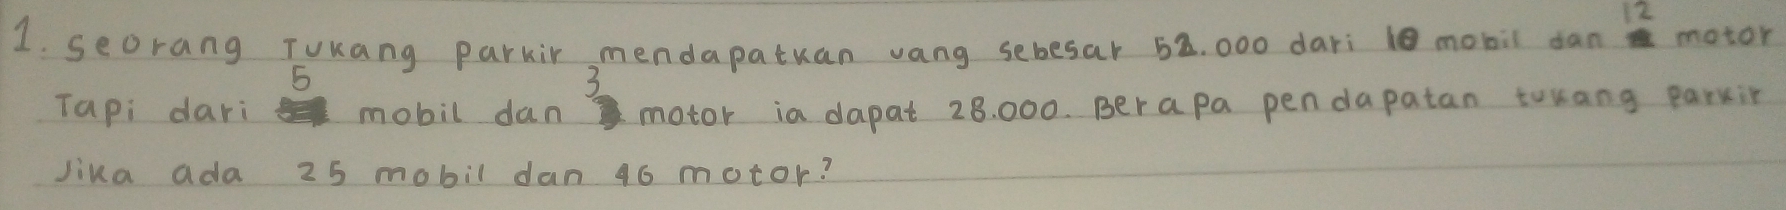 1. Seorang Tukang parkir mendapatkan uang sebesar 52.000 dari 10 mobil dan 12 motor
Tapi dari 5 mobil dan 3 motor ia dapat 28.000. Berapa pendapatan tukang parkir
Jika ada 25 mobil dan 46 motor?